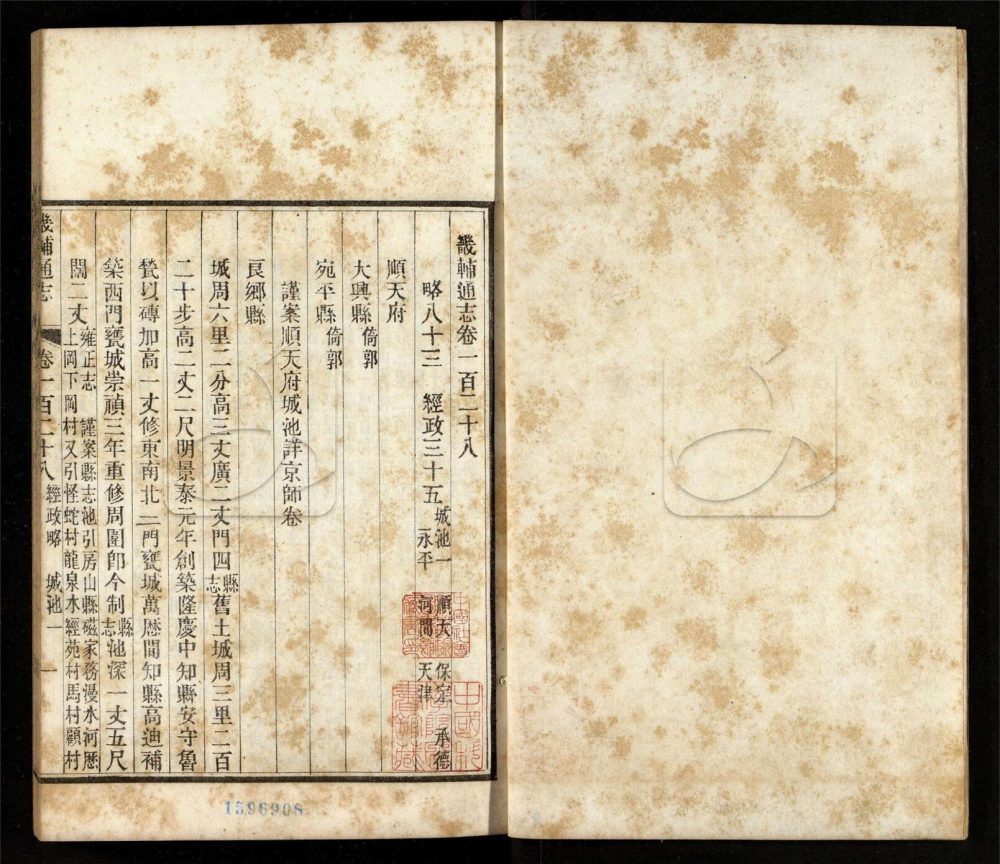 畿輔通志卷一百二十八
略八十三　經政三十五　城池一　順天　保定　承德　永平　河間　天津
順天府
大興縣倚郭
宛平縣倚郭
謹案順天府城池詳京師卷
良鄉縣
城周六里二分高三丈廣二丈門四縣志舊土城周三里二百
二十步高二丈二尺明景泰元年創築隆慶中知縣安守魯
甃以磚加高一丈修東南北三門甕城萬厯間知縣高迪補
築西門甕城崇禎三年重修周圍卽今制縣志池深一丈五尺
闊二丈雍正志　謹案縣志池引房山縣磁家務漫水河厯上岡下岡村又引怪蛇村龍泉水經苑村馬村顧村
畿輔通志　卷一百二十八　經政略　城池一　一
1596908